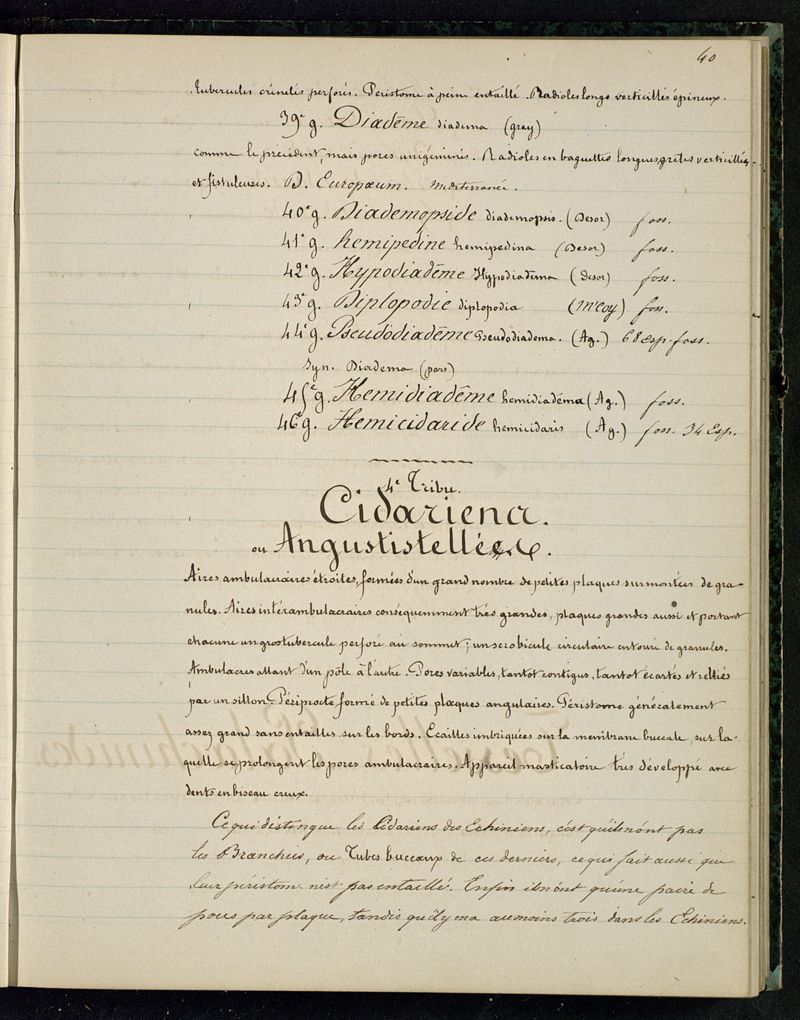 40
tubercules crénelés perforés. Peristome à peine entaillé. Radioles longs verticillés épineux.
39e g. Diadême diadema (gray)
comme le precédent, mais pores unigéminés. Radioles en baguettes longues grêles verticillés
et fistuleuses. D. Europæum. Mediterranée.
40e g. Diademopside diademopsis. (Desor) foss.
41e g. hemipedine hemipedina (Desor) foss.
42e g. Hypodiadême Hypodiadêma (Desor) foss.
43e g. Diplopodie diplopodia (M'coy) foss.
44e g. Pseudodiadême Pseudodiadema. (Ag.) 68 esp. foss.
Syn. Diadema (pars)
45e g. Hemidiadême hemidiadêma (Ag.) foss.
46e g. Hemicidaride hemicidaris (Ag.) foss. 34 Esp.
4e Tribu.
Cidariens.
ou Angustistellées.
Aires ambulacraires étroites, formées d'un grand nombre de petites plaques surmontées de gra-
nules. Aires intérambulacraires conséquemment très grandes, plaques grandes aussi et portant
chacune un gros tubercule perforé au sommet; un scrobicule circulaire entouré de granules.
Ambulacres allant d'un pôle à l'autre. Pores variables, tantot contigus, tantot écartés et reliés
par un sillon. Périprocte formé de petites plaques angulaires. Péristome généralement
assez grand sans entailles sur les bords. Ecailles imbriquées sur la membrane buccale, sur la-
quelle se prolongent les pores ambulacraires. Appareil masticatoire très développé avec
dents en biseau creux.
Ce qui distingue les Cidariens des Echiniens, c'est qu'ils n'ont pas
les Branchies, ou Tubes buccaux de ces derniers, ce qui fait aussi que
leur péristome n'est pas entaillé. Enfin ils n'ont qu'une paire de
pores par plaque, tandis qu'il y en a au moins trois dans les Echiniens.